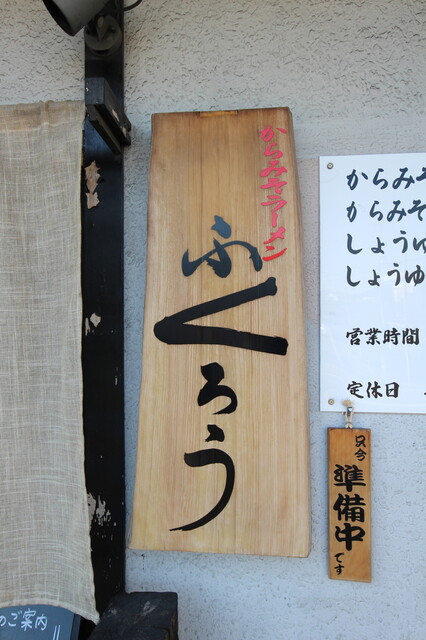 からみそラーメン
ふくろう
からみそ
からみそ
しょうゆ
しょうゆ
営業時間
定休日
只今
準備中
です
のご案内